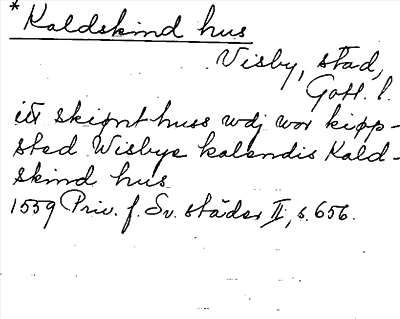 * Kaldskind hus
Visby, stad,
Gotl. l.
itt skiønt huss wdj wor kiøp-
sted Wisbye kalendis Kald-
skind hus
1559 Priv. f. Sv. städer II, s. 656.